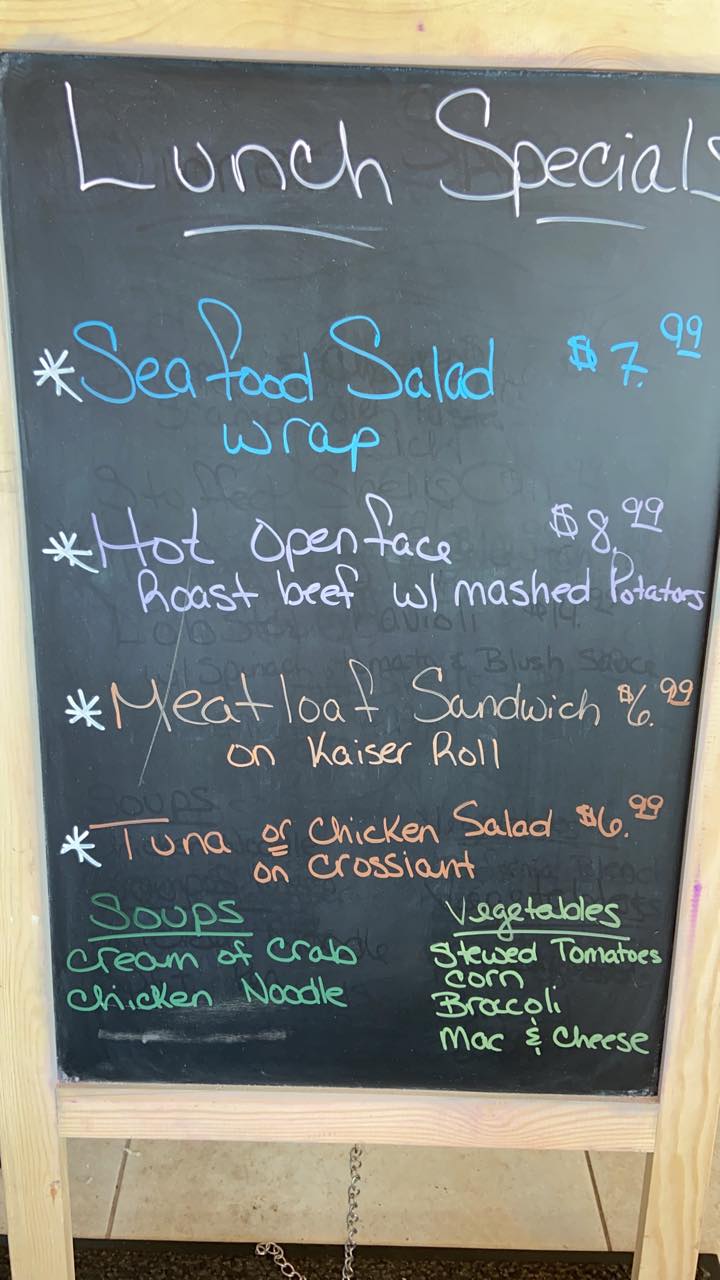 Lunch Specials
*Seafood Salad $7.99
wrap
*Hot Open face $8.99
Roast beef w/ mashed Potatoes
*Meatloaf Sandwich $6.99
on Kaiser Roll
*Tuna or Chicken Salad $6.99
on Crossiant
Soups
Cream of Crab
Chicken Noodle
Vegetables
Stewed Tomatoes
Corn
Braccoli
Mac & Cheese